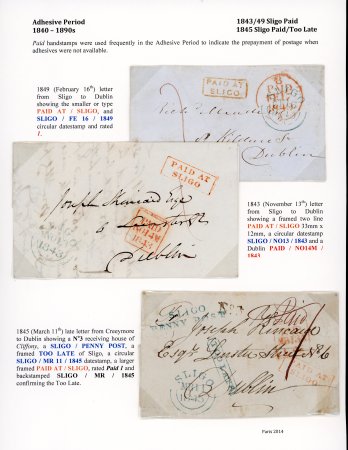 Adhesive Period
1840 – 1890s
1843/49 Sligo Paid
1845 Sligo Paid/Too Late
Paid handstamps were used frequently in the Adhesive Period to indicate the prepayment of postage when
adhesives were not available.
1849 (February 16th) letter
from Sligo to Dublin
showing the smaller or type
PAID AT / SLIGO, and
SLIGO / FE 16 / 1849
circular datestamp and rated
1.
PAID AT
SLIGO
PAID
1849
Dublin
PAID AT
SLIGO
Joseph
6
Dublin
1843
1843 (November 13th) letter
from Sligo to Dublin
showing a framed two line
PAID AT / SLIGO 33mm x
12mm, a circular datestamp
SLIGO / NO13 / 1843 and a
Dublin PAID / NO14M /
1843.
1845 (March 11th) late letter from Creevymore
to Dublin showing a Nº3 receiving house of
Cliffony, a SLIGO / PENNY POST, a
framed TOO LATE of Sligo, a circular
SLIGO / MR 11 / 1845 datestamp, a larger
framed PAID AT / SLIGO, rated Paid 1 and
backstamped SLIGO / MR / 1845
confirming the Too Late.
SLIGO
PENNY POST
Paid
Joseph
Esqr
Street No 6
SLIGO
1845
Dublin
PAID AT
SLIGO
Paris 2014